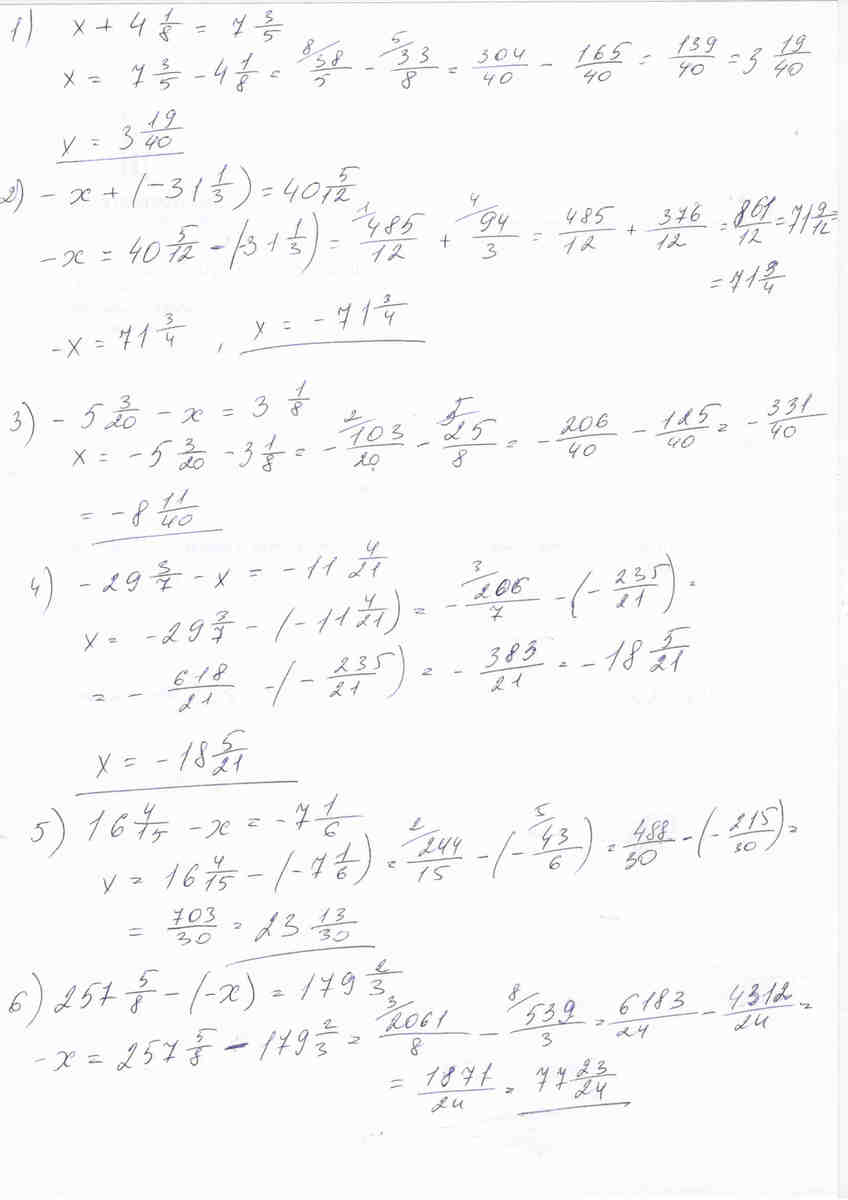 1) x + 4 1/8 = 7 3/5
x = 7 3/5 - 4 1/8 = 8/ 38/5 - 5/ 33/8 = 304/40 - 165/40 = 139/40 = 3 19/40
y = 3 19/40
2) - x + (-31 1/3) = 40 5/12
-x = 40 5/12 - (-31 1/3) = 1/ 485/12 + 4/ 94/3 = 485/12 + 376/12 = 861/12 = 71 9/12 =
= 71 3/4
-x = 71 3/4 , x = - 71 3/4
3) - 5 3/20 - x = 3 1/8
x = - 5 3/20 - 3 1/8 = - 2/ 103/20 - 5/ 25/8 = - 206/40 - 125/40 = - 331/40
= - 8 11/40
4) - 29 3/7 - x = - 11 4/21
x = - 29 3/7 - (- 11 4/21) = - 3/ 206/7 - (- 235/21) =
= - 618/21 - (- 235/21) = - 383/21 = - 18 5/21
x = - 18 5/21
5) 16 4/15 - x = - 7 1/6
x = 16 4/15 - (- 7 1/6) = 2/ 244/15 - (- 5/ 43/6) = 488/30 - (- 215/30) =
= 703/30 = 23 13/30
6) 257 5/8 - (-x) = 179 2/3
-x = 257 5/8 - 179 2/3 = 3/ 2061/8 - 8/ 539/3 = 6183/24 - 4312/24 =
= 1871/24 = 77 23/24